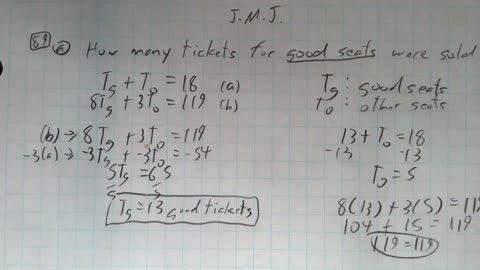 J.M.J.
59 a How many tickets for good seats were sold
Tg + To = 18 (a)
8Tg + 3To = 119 (b)
Tg: good seats
To: other seats
(b) → 8Tg + 3To = 119
-3(a) → -3Tg + -3To = -54
5Tg = 65
5 5
Tg = 13 good tickets
13 + To = 18
-13 -13
To = 5
8(13) + 3(5) = 11
104 + 15 = 119
119 = 119